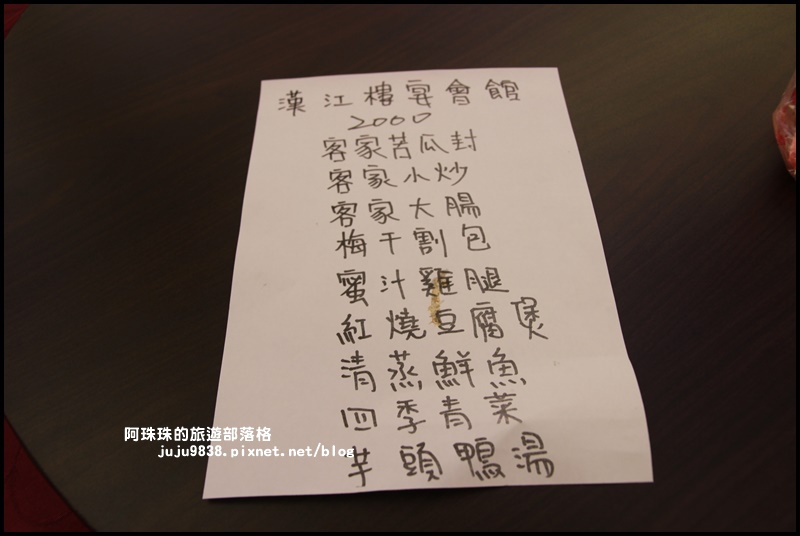 漢江樓宴會館
2000
客家苦瓜封
客家小炒
客家大腸
梅干割包
蜜汁雞腿
紅燒豆腐煲
清蒸鮮魚
四季青菜
芋頭鴨湯
阿珠珠的旅遊部落格
juju9838.pixnet.net/blog